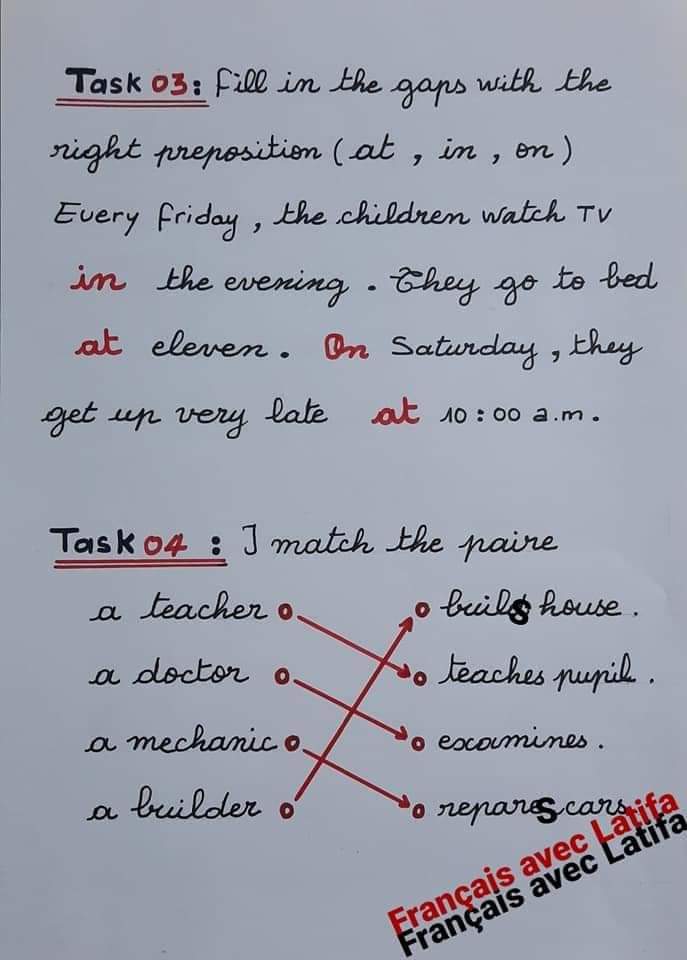 Task 03: Fill in the gaps with the
right preposition ( at , in , on )
Every Friday , the children watch TV
in the evening . They go to bed
at eleven . On Saturday , they
get up very late at 10 : 00 a.m .
Task 04 : I match the paire
a teacher builds house .
a doctor teaches pupil .
a mechanic examines .
a builder repares cars
Français avec Latifa
Français avec Latifa